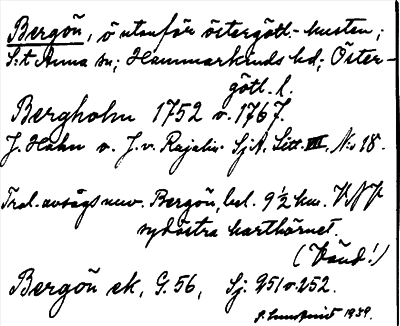 Bergön, ö utanför östergötl.-kusten;
S:t Anna sn; Hammarkinds hd; Öster-
götl. l.
Bergholm 1752 o. 1767.
J. Hahn o. J. v. Rajalin. SjA. Litt. III, No 18.
Trol. avsågs nuv. Bergön, bel. 9 1/2 km.
sydöstra karthörnet.
(Vänd!)
Bergön ek, G. 56, Sj. 251 o. 252.
1939.